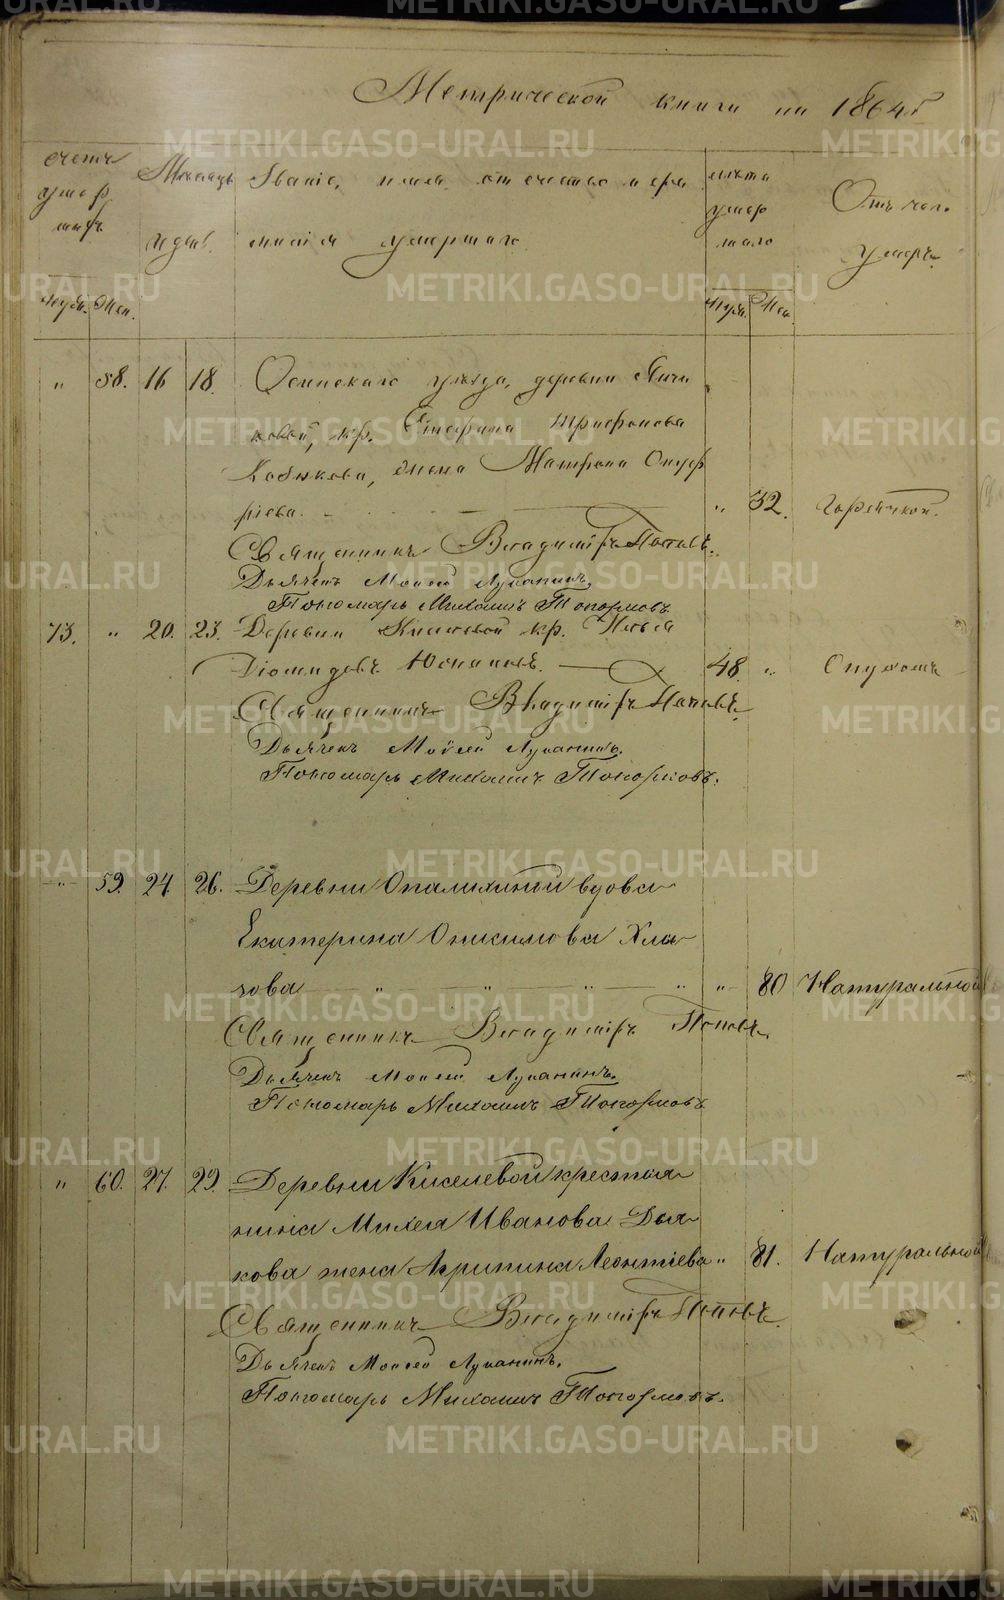 METRIKI.GASO-URAL.RU
Метрической книги на 1864 г
счетъ умершихъ
Муж. Жен.
Месяцъ и день
Званіе, имя, отчество и фамилія умершаго.
лета умершаго
Муж. Жен.
Отъ чего умеръ.
" 58. 16 18. Осинскаго уезда, деревни
ковой, кр. Стефана Трифонова
Кобякова, жена Матрона Онуф
ріева. " 32. Горячкой.
Священникъ Владиміръ Поповъ.
Дьячекъ Моисей Луканинъ.
Пономарь Михаилъ Топорковъ.
73. " 20. 23. Деревни кр. Илья
Діомидовъ 48. " Опухоли
Священникъ Владиміръ Поповъ.
Дьячекъ Моисей Луканинъ.
Пономарь Михаилъ Топорковъ.
" 59. 24 26. Деревни Опалихиной вдова
Екатерина Онисимова Хла
това " " " " " 80 Натуральной
Священникъ Владиміръ Поповъ.
Дьячекъ Моисей Луканинъ.
Пономарь Михаилъ Топорковъ
" 60. 27. 29. Деревни Киселевой крестья
нина Михея Иванова Дья
кова жена Агрипина Леонтіева " 81. Натуральной
Священникъ Владиміръ Поповъ.
Дьячекъ Моисей Луканинъ.
Пономарь Михаилъ Топорковъ.